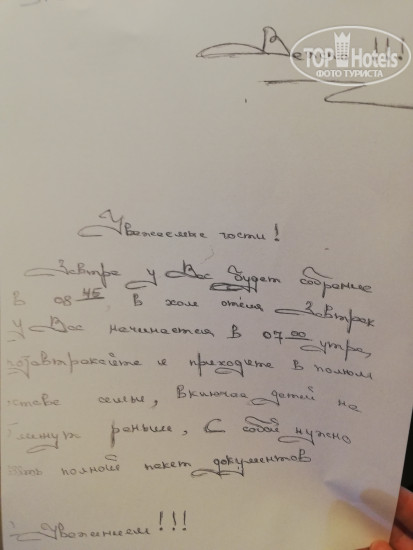 TOP Hotels
ФОТО ТУРИСТА
!!!
Уважаемые гости!
Завтра у Вас будет собрание
в 08 45 в холл отеля Завтрак
у Вас начинается в 07.00 утра,
позавтракайте и приходите в полном
ставе семьи, включая детей на
минут раньше, С собой нужно
полный пакет документов
Уважением!!!